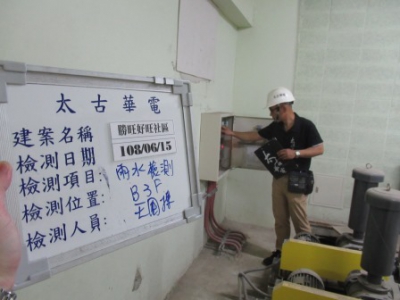 太古華電
建案名稱 勝旺好旺社區
檢測日期 108/06/15
檢測項目: 雨水檢測
檢測位置: B3F
檢測人員: